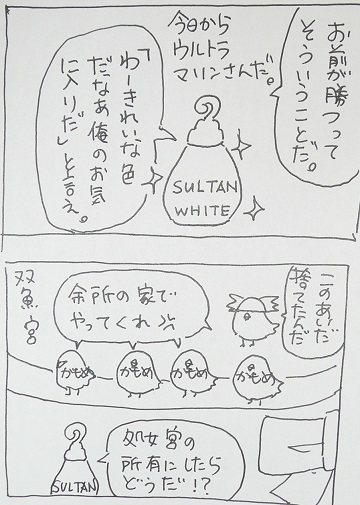 お前が勝つって
そういうことだ。
今日から
ウルトラ
マリンさんだ。
「わーきれいな色
だなあ俺のお気
に入りだ」と言え。
SULTAN
WHITE
このあいだ
捨てたんだ
余所の家で
やってくれ
双魚宮
かもめ
かもめ
かもめ
かもめ
処女宮の
所有にしたら
どうだ!?
SULTAN